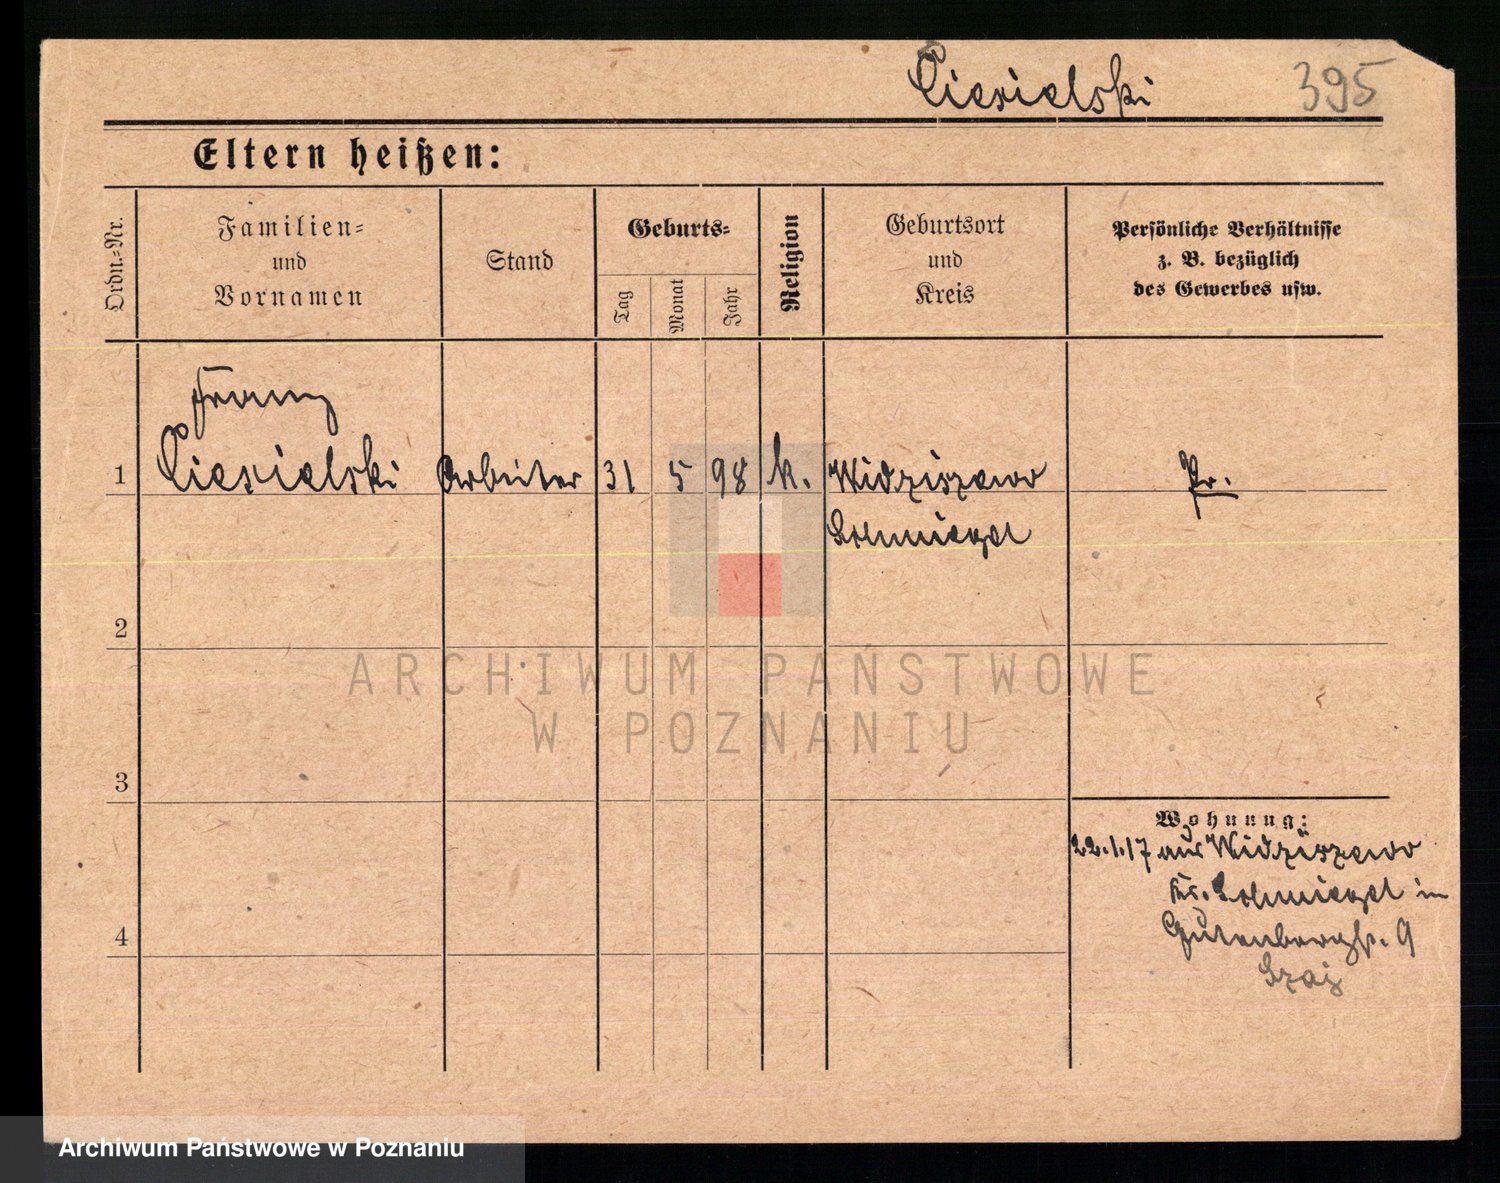 Ciesielski 395
Eltern heißen:
Ordn.-Nr.
Familien-
und
Vornamen
Stand
Geburts-
Tag
Monat
Jahr
Religion
Geburtsort
und
Kreis
Persönliche Verhältnisse
z. B. bezüglich
des Gewerbes usw.
Franz
1 Ciesielski Arbeiter 31 5 98 k. Widziszewo Pr.
Schmiegel
2
ARCHIWUM PAŃSTWOWE
W POZNANIU
3
Wohnung:
22.1.17 aus Widziszewo
Kr. Schmiegel in
Gutenbergstr. 9
4
Archiwum Państwowe w Poznaniu